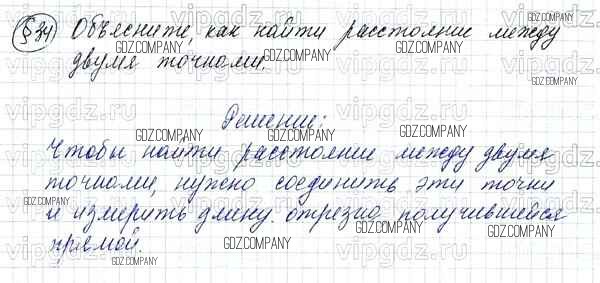 §34 Объясните, как найти расстояние между
двумя точками.
Решение:
Чтобы найти расстояние между двумя
точками, нужно соединить эти точки
и измерить длину отрезка получившейся
прямой.